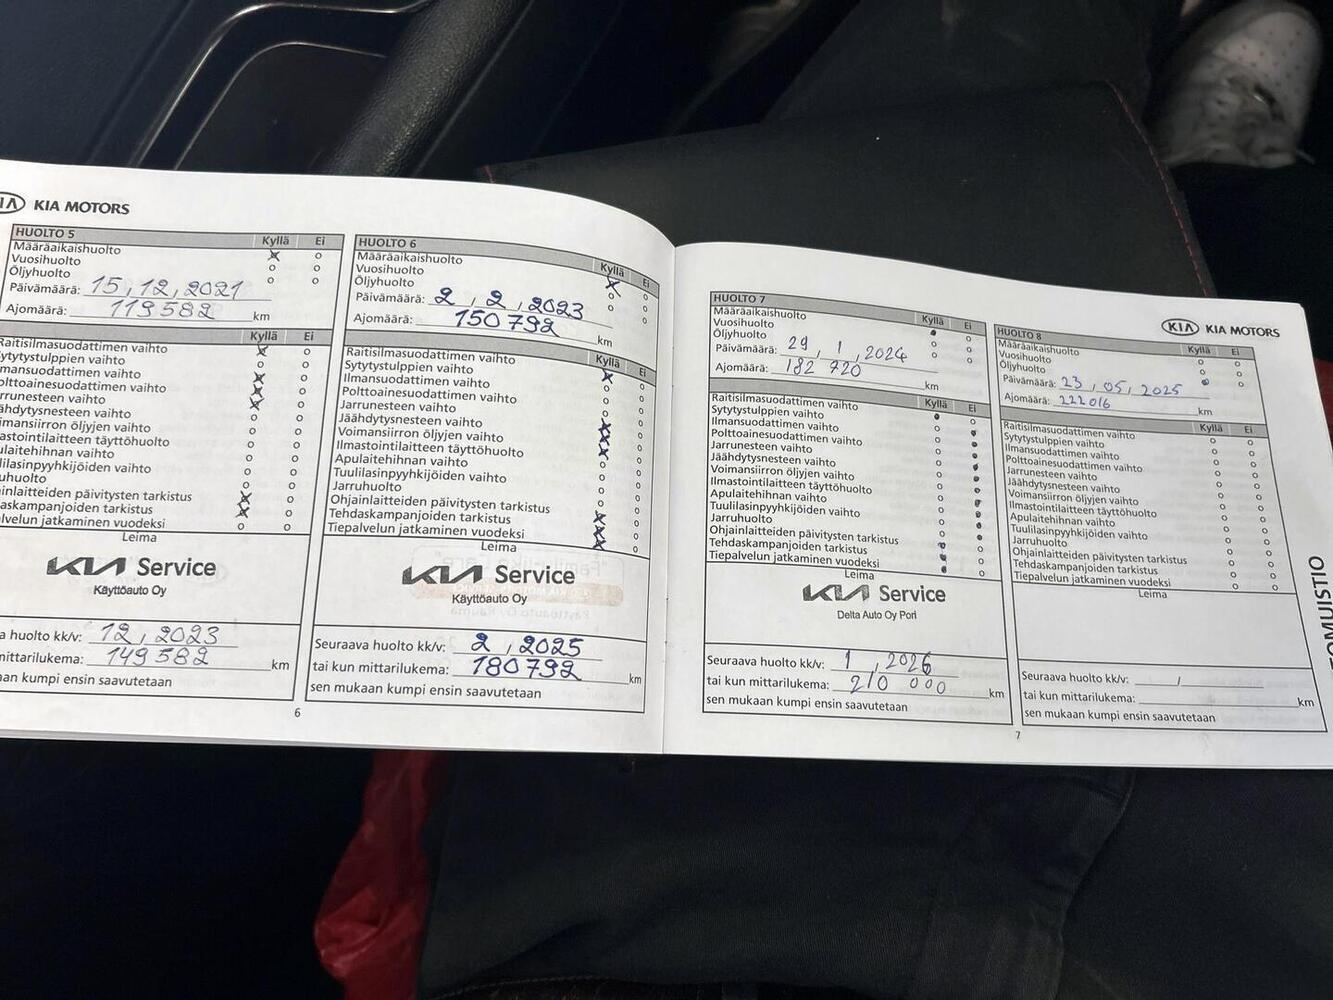 KIA MOTORS
HUOLTO 5
Kyllä Ei
Määräaikaishuolto
Vuosihuolto
Öljyhuolto
Päivämäärä: 15, 12, 2021
Ajomäärä: 119582 km
Kyllä Ei
Raitisilmasuodattimen vaihto
Sytytystulppien vaihto
Ilmansuodattimen vaihto
Polttoainesuodattimen vaihto
Jarrunesteen vaihto
Jäähdytysnesteen vaihto
Voimansiirron öljyjen vaihto
Ilmastointilaitteen täyttöhuolto
Apulaitehihnan vaihto
Tuulilasinpyyhkijöiden vaihto
Jarruhuolto
Ohjainlaitteiden päivitysten tarkistus
Tehdaskampanjoiden tarkistus
Tiepalvelun jatkaminen vuodeksi
Leima
KIA Service
Käyttöauto Oy
Seuraava huolto kk/v: 12, 2023
tai kun mittarilukema: 149582 km
sen mukaan kumpi ensin saavutetaan
6
HUOLTO 6
Kyllä Ei
Määräaikaishuolto
Vuosihuolto
Öljyhuolto
Päivämäärä: 2, 2, 2023
Ajomäärä: 150792 km
Kyllä Ei
Raitisilmasuodattimen vaihto
Sytytystulppien vaihto
Ilmansuodattimen vaihto
Polttoainesuodattimen vaihto
Jarrunesteen vaihto
Jäähdytysnesteen vaihto
Voimansiirron öljyjen vaihto
Ilmastointilaitteen täyttöhuolto
Apulaitehihnan vaihto
Tuulilasinpyyhkijöiden vaihto
Jarruhuolto
Ohjainlaitteiden päivitysten tarkistus
Tehdaskampanjoiden tarkistus
Tiepalvelun jatkaminen vuodeksi
Leima
KIA Service
Käyttöauto Oy
Seuraava huolto kk/v: 2, 2025
tai kun mittarilukema: 180792 km
sen mukaan kumpi ensin saavutetaan
HUOLTO 7
Kyllä Ei
Määräaikaishuolto
Vuosihuolto
Öljyhuolto
Päivämäärä: 29, 1, 2024
Ajomäärä: 182 720 km
Kyllä Ei
Raitisilmasuodattimen vaihto
Sytytystulppien vaihto
Ilmansuodattimen vaihto
Polttoainesuodattimen vaihto
Jarrunesteen vaihto
Jäähdytysnesteen vaihto
Voimansiirron öljyjen vaihto
Ilmastointilaitteen täyttöhuolto
Apulaitehihnan vaihto
Tuulilasinpyyhkijöiden vaihto
Jarruhuolto
Ohjainlaitteiden päivitysten tarkistus
Tehdaskampanjoiden tarkistus
Tiepalvelun jatkaminen vuodeksi
Leima
KIA Service
Delta Auto Oy Pori
Seuraava huolto kk/v: 1, 2026
tai kun mittarilukema: 210 000 km
sen mukaan kumpi ensin saavutetaan
KIA KIA MOTORS
HUOLTO 8
Kyllä Ei
Määräaikaishuolto
Vuosihuolto
Öljyhuolto
Päivämäärä: 23, 05, 2025
Ajomäärä: 222016 km
Kyllä Ei
Raitisilmasuodattimen vaihto
Sytytystulppien vaihto
Ilmansuodattimen vaihto
Polttoainesuodattimen vaihto
Jarrunesteen vaihto
Jäähdytysnesteen vaihto
Voimansiirron öljyjen vaihto
Ilmastointilaitteen täyttöhuolto
Apulaitehihnan vaihto
Tuulilasinpyyhkijöiden vaihto
Jarruhuolto
Ohjainlaitteiden päivitysten tarkistus
Tehdaskampanjoiden tarkistus
Tiepalvelun jatkaminen vuodeksi
Leima
Seuraava huolto kk/v: ,
tai kun mittarilukema: km
sen mukaan kumpi ensin saavutetaan
7